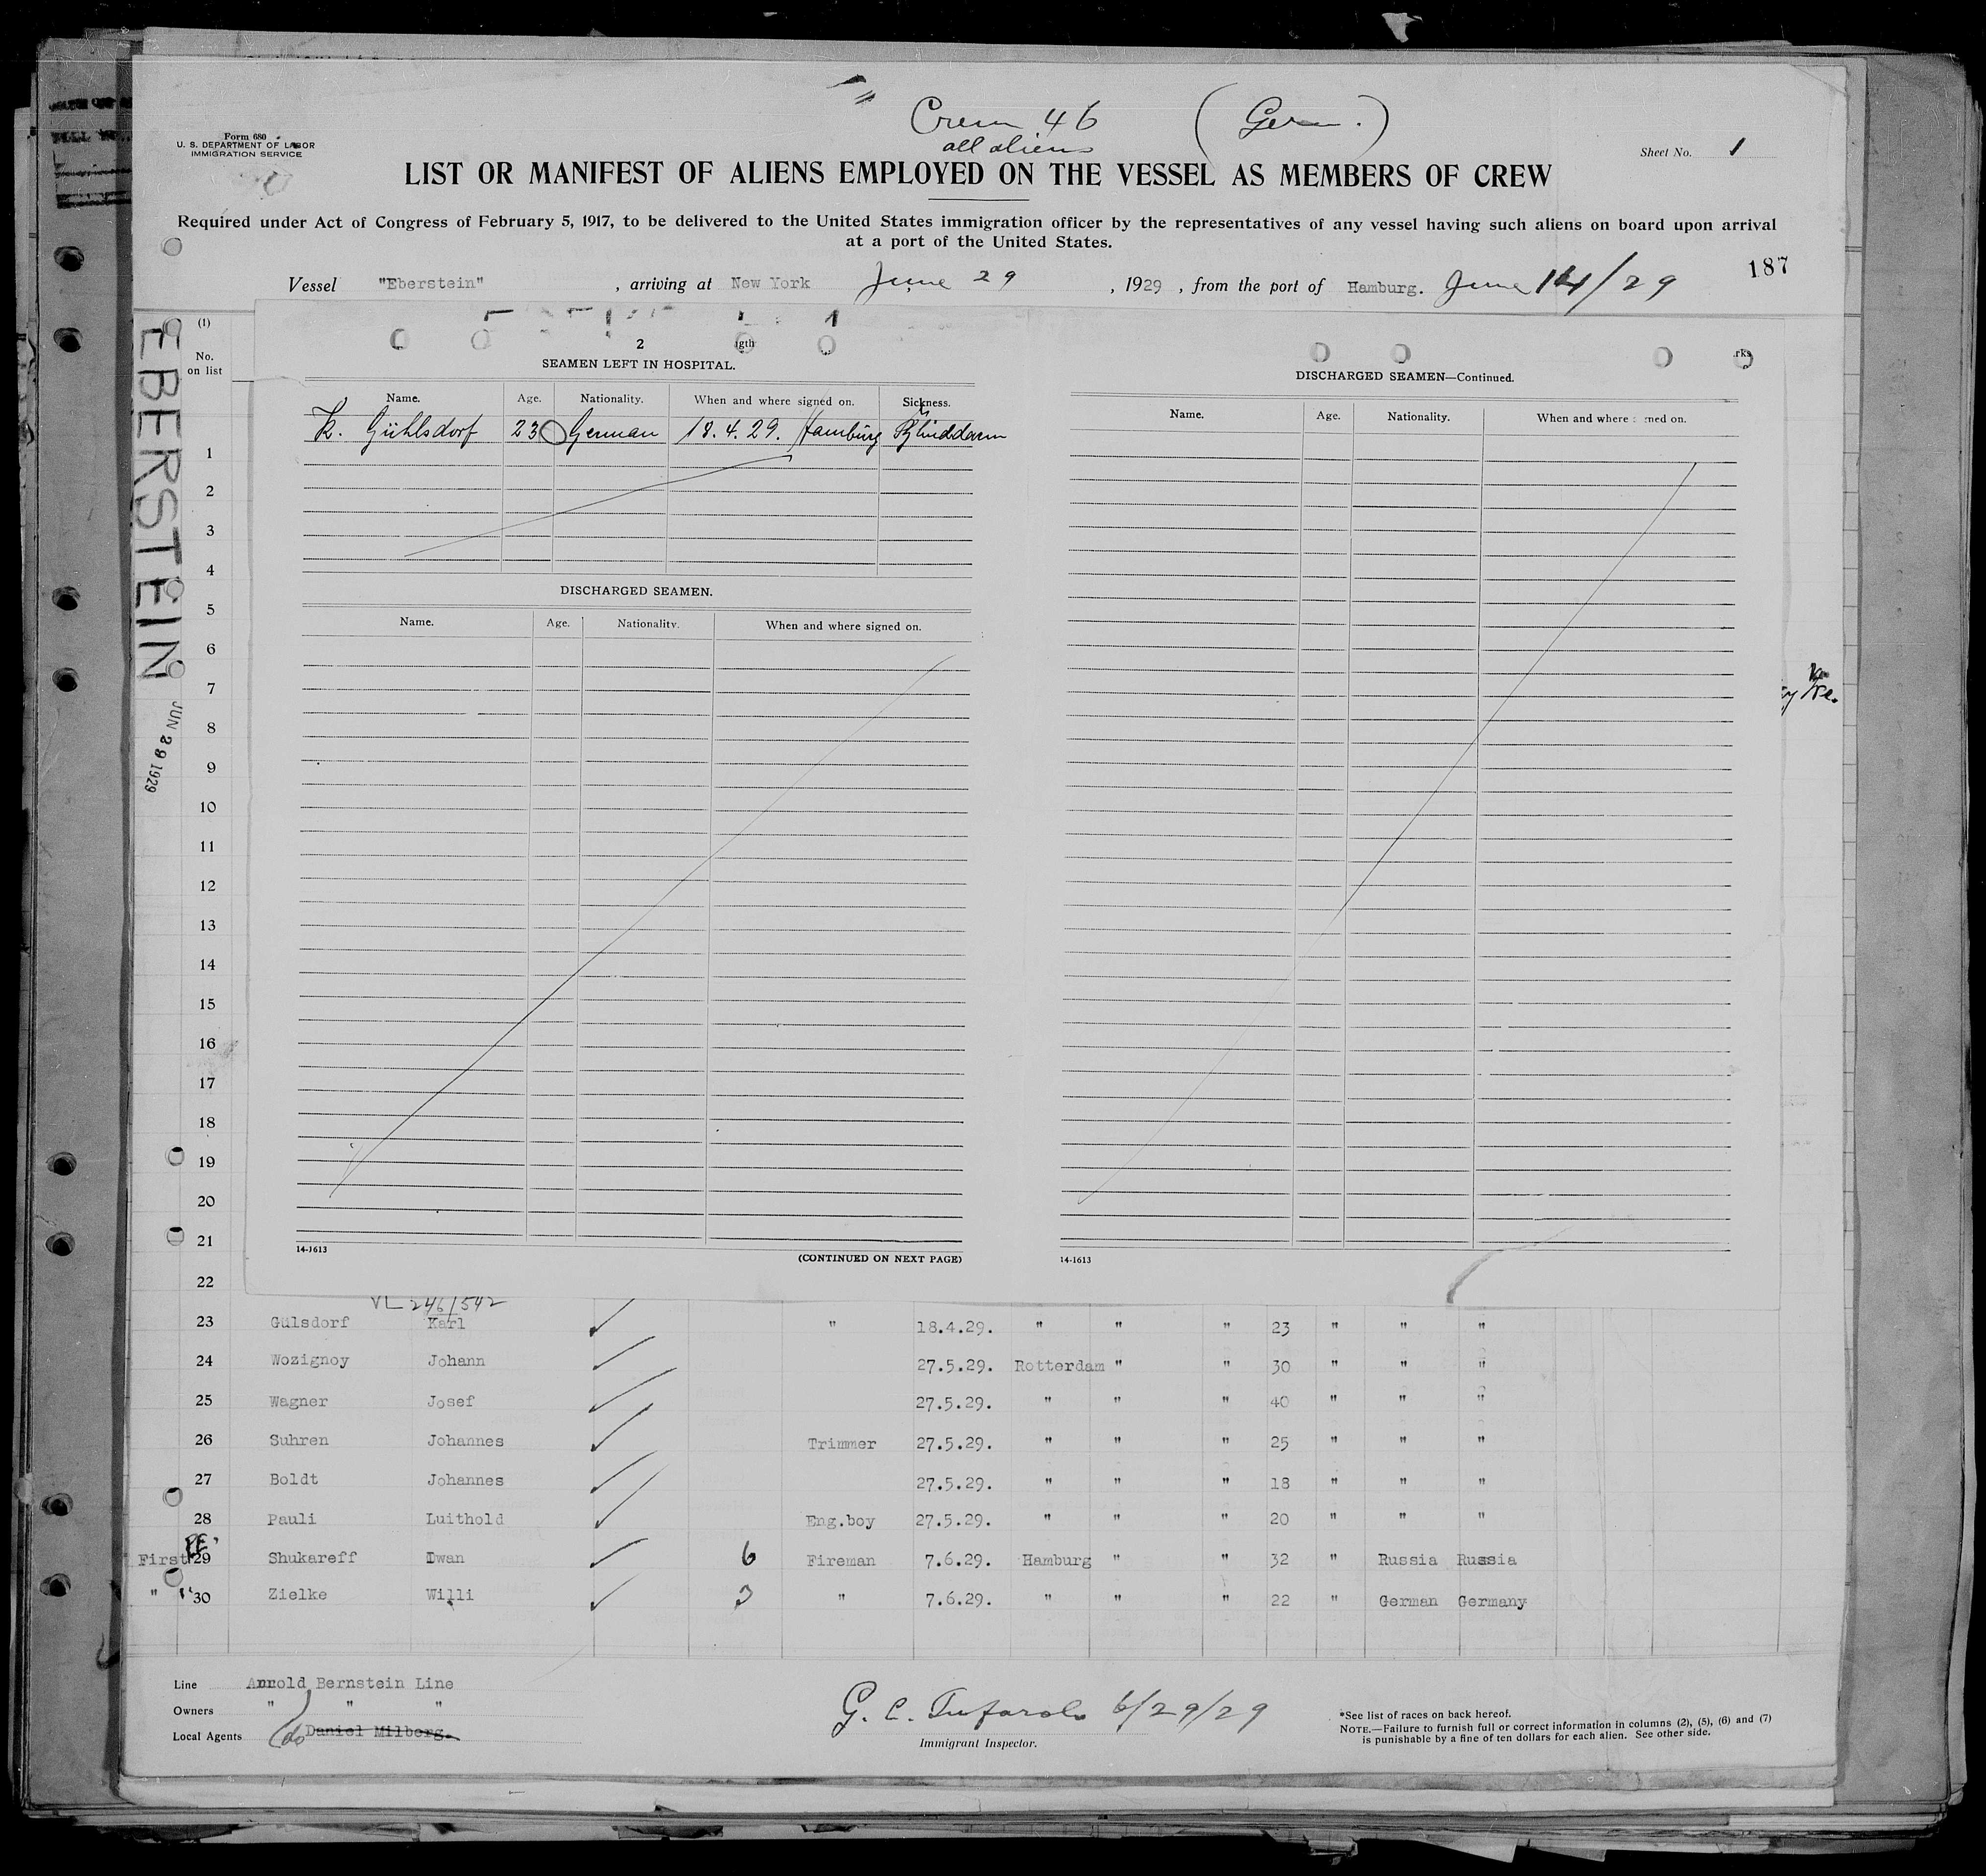 Crew 46 (Germ.)
all aliens
Form 680
U. S. DEPARTMENT OF LABOR
IMMIGRATION SERVICE
Sheet No. 1
LIST OR MANIFEST OF ALIENS EMPLOYED ON THE VESSEL AS MEMBERS OF CREW
Required under Act of Congress of February 5, 1917, to be delivered to the United States immigration officer by the representatives of any vessel having such aliens on board upon arrival
at a port of the United States.
187
Vessel "Eberstein" , arriving at New York June 29 , 1929 , from the port of Hamburg. June 14/29
EBERSTEIN
JUN 29 1929
(1)
No.
on list
2
SEAMEN LEFT IN HOSPITAL.
Name. Age. Nationality. When and where signed on. Sickness.
K. Gühlsdorf 23 German 18.4.29. Hamburg Blinddarm
DISCHARGED SEAMEN.
Name. Age. Nationality. When and where signed on.
14-1613
(CONTINUED ON NEXT PAGE)
DISCHARGED SEAMEN—Continued.
Name. Age. Nationality. When and where signed on.
14-1613
1
2
3
4
5
6
7
8
9
10
11
12
13
14
15
16
17
18
19
20
21
22
VL 246/542
23 Gülsdorf Karl " 18.4.29. " " " 23 " " "
24 Wozignoy Johann 27.5.29. Rotterdam " " 30 " " "
25 Wagner Josef 27.5.29. " " " 40 " " "
26 Suhren Johannes Trimmer 27.5.29. " " " 25 " " "
27 Boldt Johannes 27.5.29. " " " 18 " " "
28 Pauli Luithold Eng.boy 27.5.29. " " " 20 " " "
First 29 Shukareff Iwan 6 Fireman 7.6.29. Hamburg " " 32 " Russia Russia
" 30 Zielke Willi 3 " 7.6.29. " " " 22 " German Germany
Line Arnold Bernstein Line
Owners " " "
Local Agents do Daniel Milberg.
G. C. Tufarolo 6/29/29
Immigrant Inspector.
*See list of races on back hereof.
NOTE.—Failure to furnish full or correct information in columns (2), (5), (6) and (7)
is punishable by a fine of ten dollars for each alien. See other side.